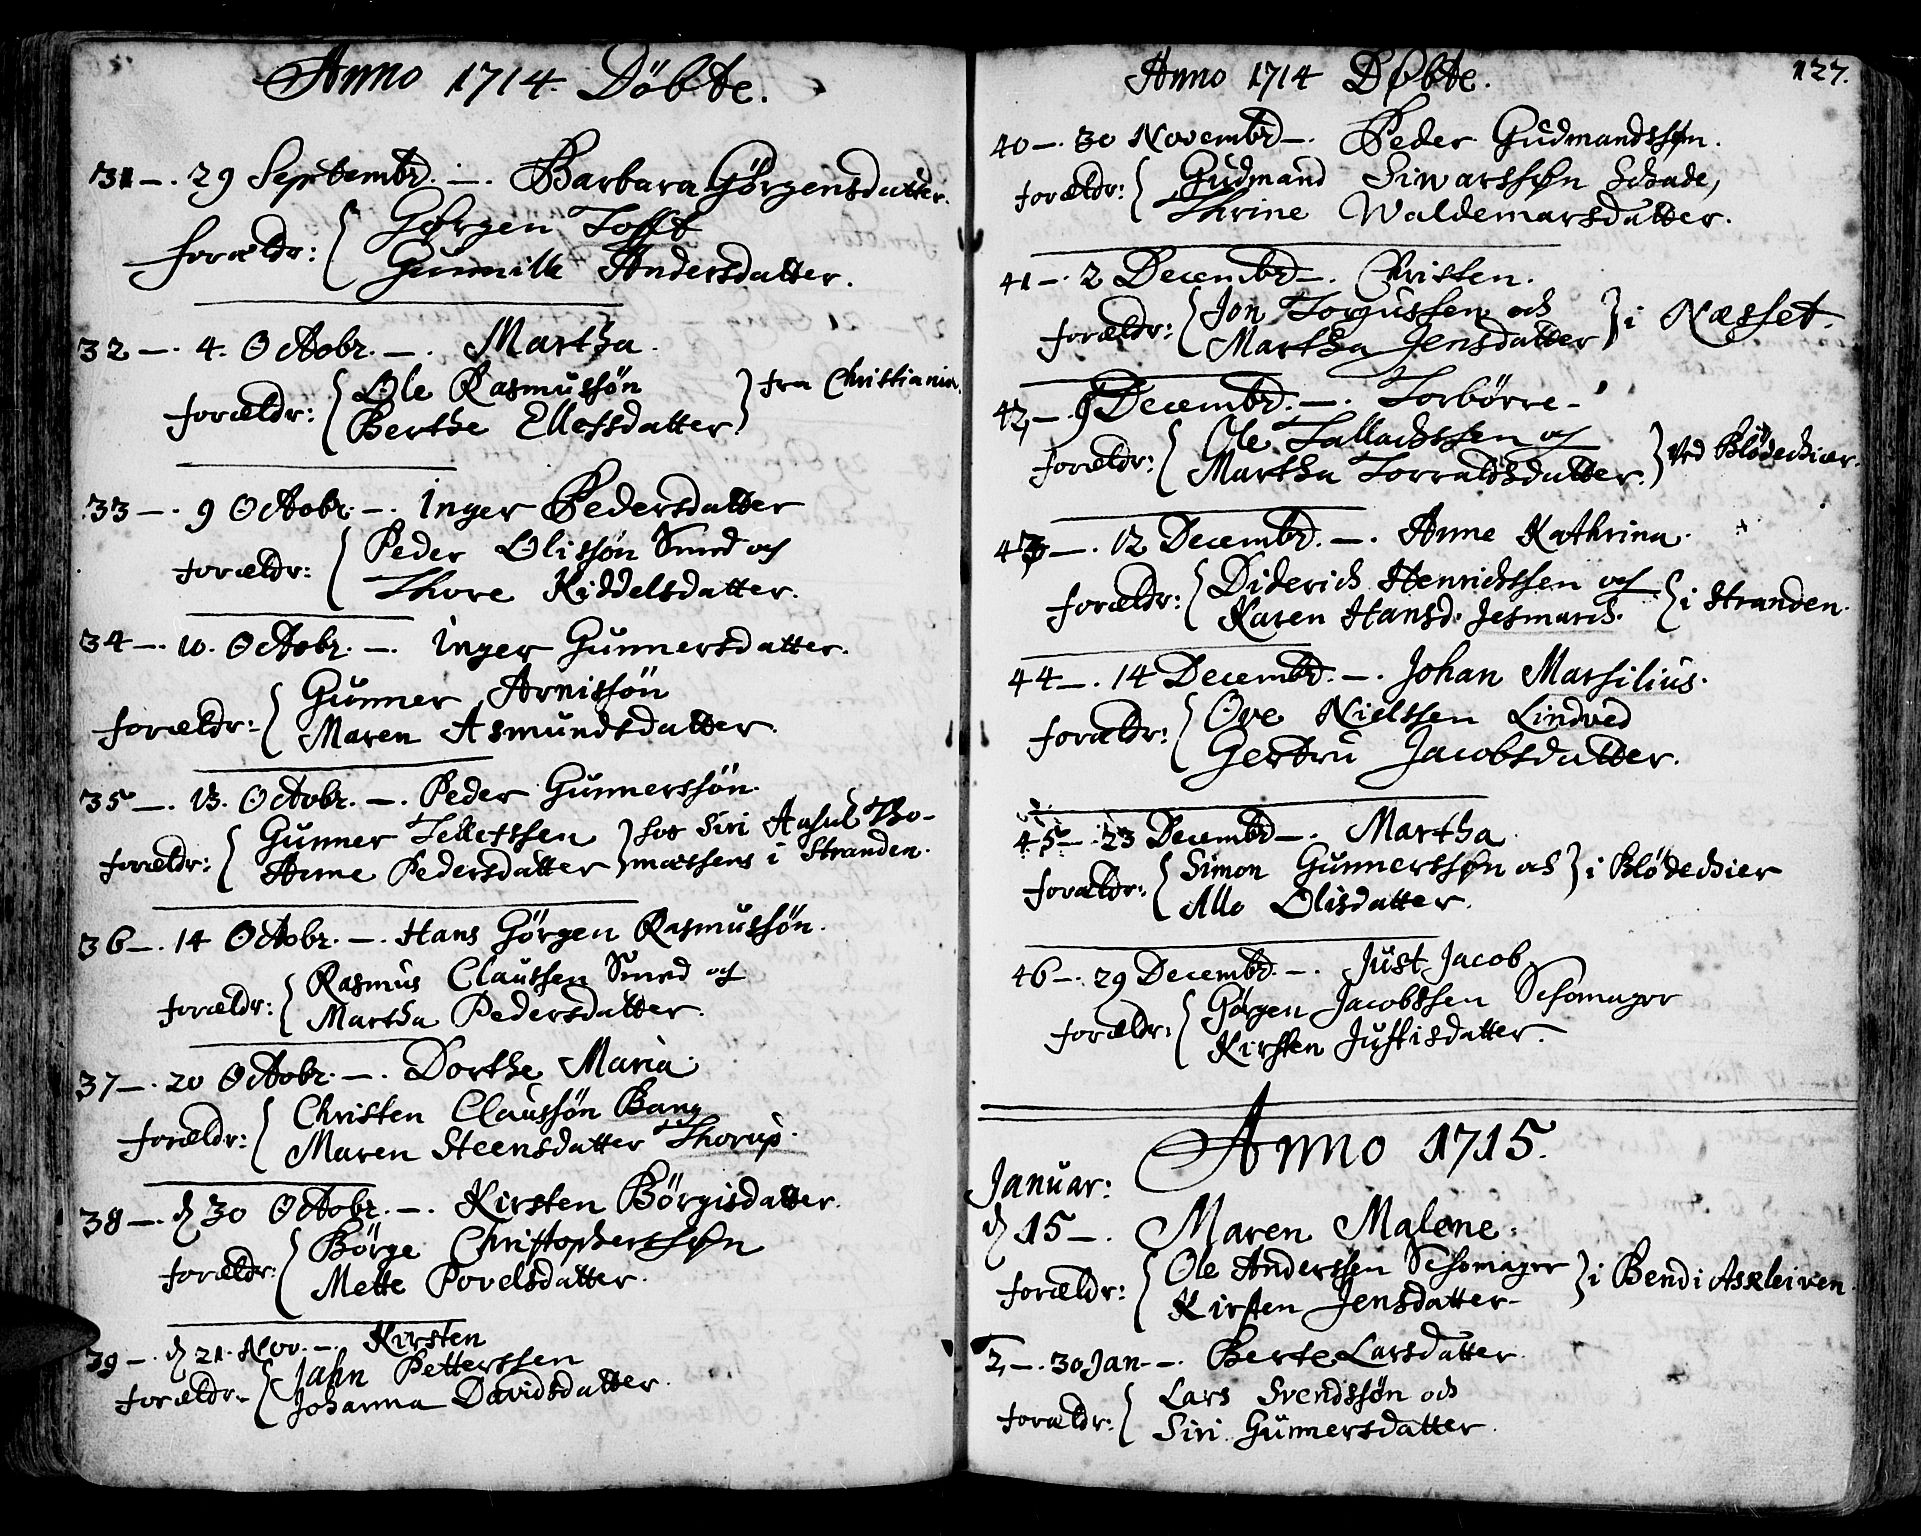 Anno 1714. Döbte.
31 —. 29 Septembr. —. Barbara Görgensdatter.
forældr: { Görgen Tofft
Gunnild Andersdatter.
32 —. 4. Octobr. —. Martha.
forældr: { Ole Rasmussön
Berthe Ellefsdatter } fra Christiania.
33 —. 9 Octobr. —. Inger Pedersdatter
forældr: { Peder Olissön Smed och
Thore Kiddelsdatter.
34 —. 10. Octobr. —. Inger Gunnersdatter.
forældr: { Gunner Arnissön
Maren Asmundsdatter.
35 —. 13. Octobr. —. Peder Gunnerssön.
forældr: { Gunner Tellefssen } hos Siri Aasul Tho-
Anne Pedersdatter } massens i Stranden.
36 —. 14 Octobr. —. Hans Görgen Rasmussön.
forældr: { Rasmus Claussen Smed og
Martha Pedersdatter.
37 —. 20 Octobr. —. Dorthe Maria.
forældr: { Christen Claussön Bang
Maren Steensdatter Thorup.
38 —. d 30 Octobr. —. Kirsten Börgisdatter.
forældr: { Börge Christopherssøn
Mette Povelsdatter.
39 —. d 21. Nov. —. Kirsten
forældr. { Jahn Petterssen
Johanna Davidsdatter.
Anno 1714 Döbte. 127.
40 —. 30 Novembr —. Peder Gudmandssøn.
forældr: { Gudmand Siwarssøn Schade,
Thrine Waldemarsdatter.
41 —. 2 Decembr —. Christen.
forældr: { Jon Torgussen och
Martha Jensdatter } i Næsset.
42, —. 9 Decembr. —. Torbörre —
forældr: { Ole Tallachssen og
Martha Torraldsdatter. } ved Blödechiær.
43 —. 12 Decembr. —. Anne Kathrina.
forældr: { Diderich Henrichssen och
Karen Hansd. Jesmarch. } i Stranden.
44 —. 14 Decembr. —. Johan Marsilius.
forældr: { Ove Nielssen Lindved
Gertru Jacobsdatter.
45 —. 23 Decembr —. Martha.
forældr: { Simon Gunnerssøn och } i Blödechier
Allo Olisdatter.
46 —. 29 Decembr. —. Just Jacob.
forældr: { Görgen Jacobssen Schomager
Kirsten Justisdatter.
Anno 1715.
Januar:
d 15 —. Maren Malene.
forældr: { Ole Anderssen Schomager } i Bendi Askleiven.
Kirsten Jensdatter —
2, —. 30 Jan —. Berte Larsdatter.
forældr: { Lars Svendssön och
Siri Gunnersdatter.